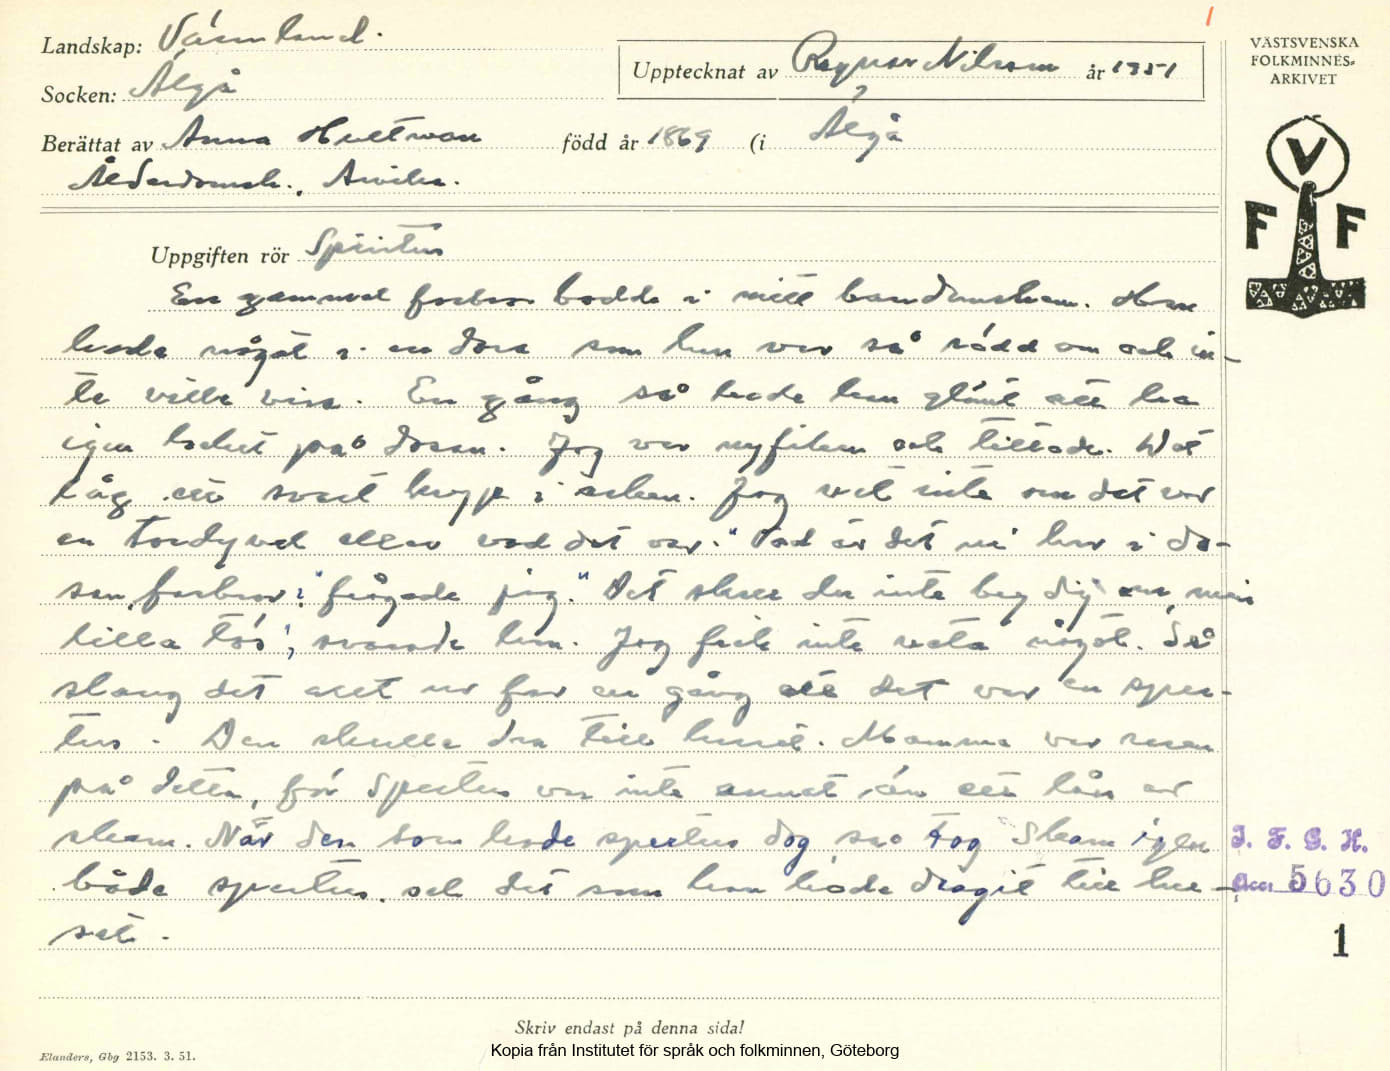 Landskap: Värmland.
Socken: Älgå
Upptecknat av Ragnar Nilsson år 1951
Berättat av Anna Hultman född år 1869 (i Älgå
Ålderdomsh., Arvika.
VÄSTSVENSKA
FOLKMINNES-
ARKIVET
V
F F
1
Uppgiften rör Spiritus
En gammal farbror bodde i mitt barndomshem. Han
hade något i en dosa som han var så rädd om och in-
te ville visa. En gång så hade han glömt att ha
igen locket på dosan. Jag var nyfiken och tittade. Det
låg ett svart kryp i asken. Jag vet inte om det var
en tordyvel eller vad det var. "Vad är det ni har i do-
san, farbror?" frågade jag. "Det skall du inte bry dig om, min
lilla tös", svarade han. Jag fick inte veta något. Så
slang det aret ur far en gång att det var en sper-
tus. Den skulle dra till huset. Mamma var resen
på detta, för Spertus var inte annat än ett lån av
skam. När den som hade spertus dog, så tog Skam igen
både spertus och det som han hade dragit till hu-
set.
I. F. G. H.
Acc. 5630
1
Skriv endast på denna sida!
Elanders, Gbg 2153. 3. 51.
Kopia från Institutet för språk och folkminnen, Göteborg